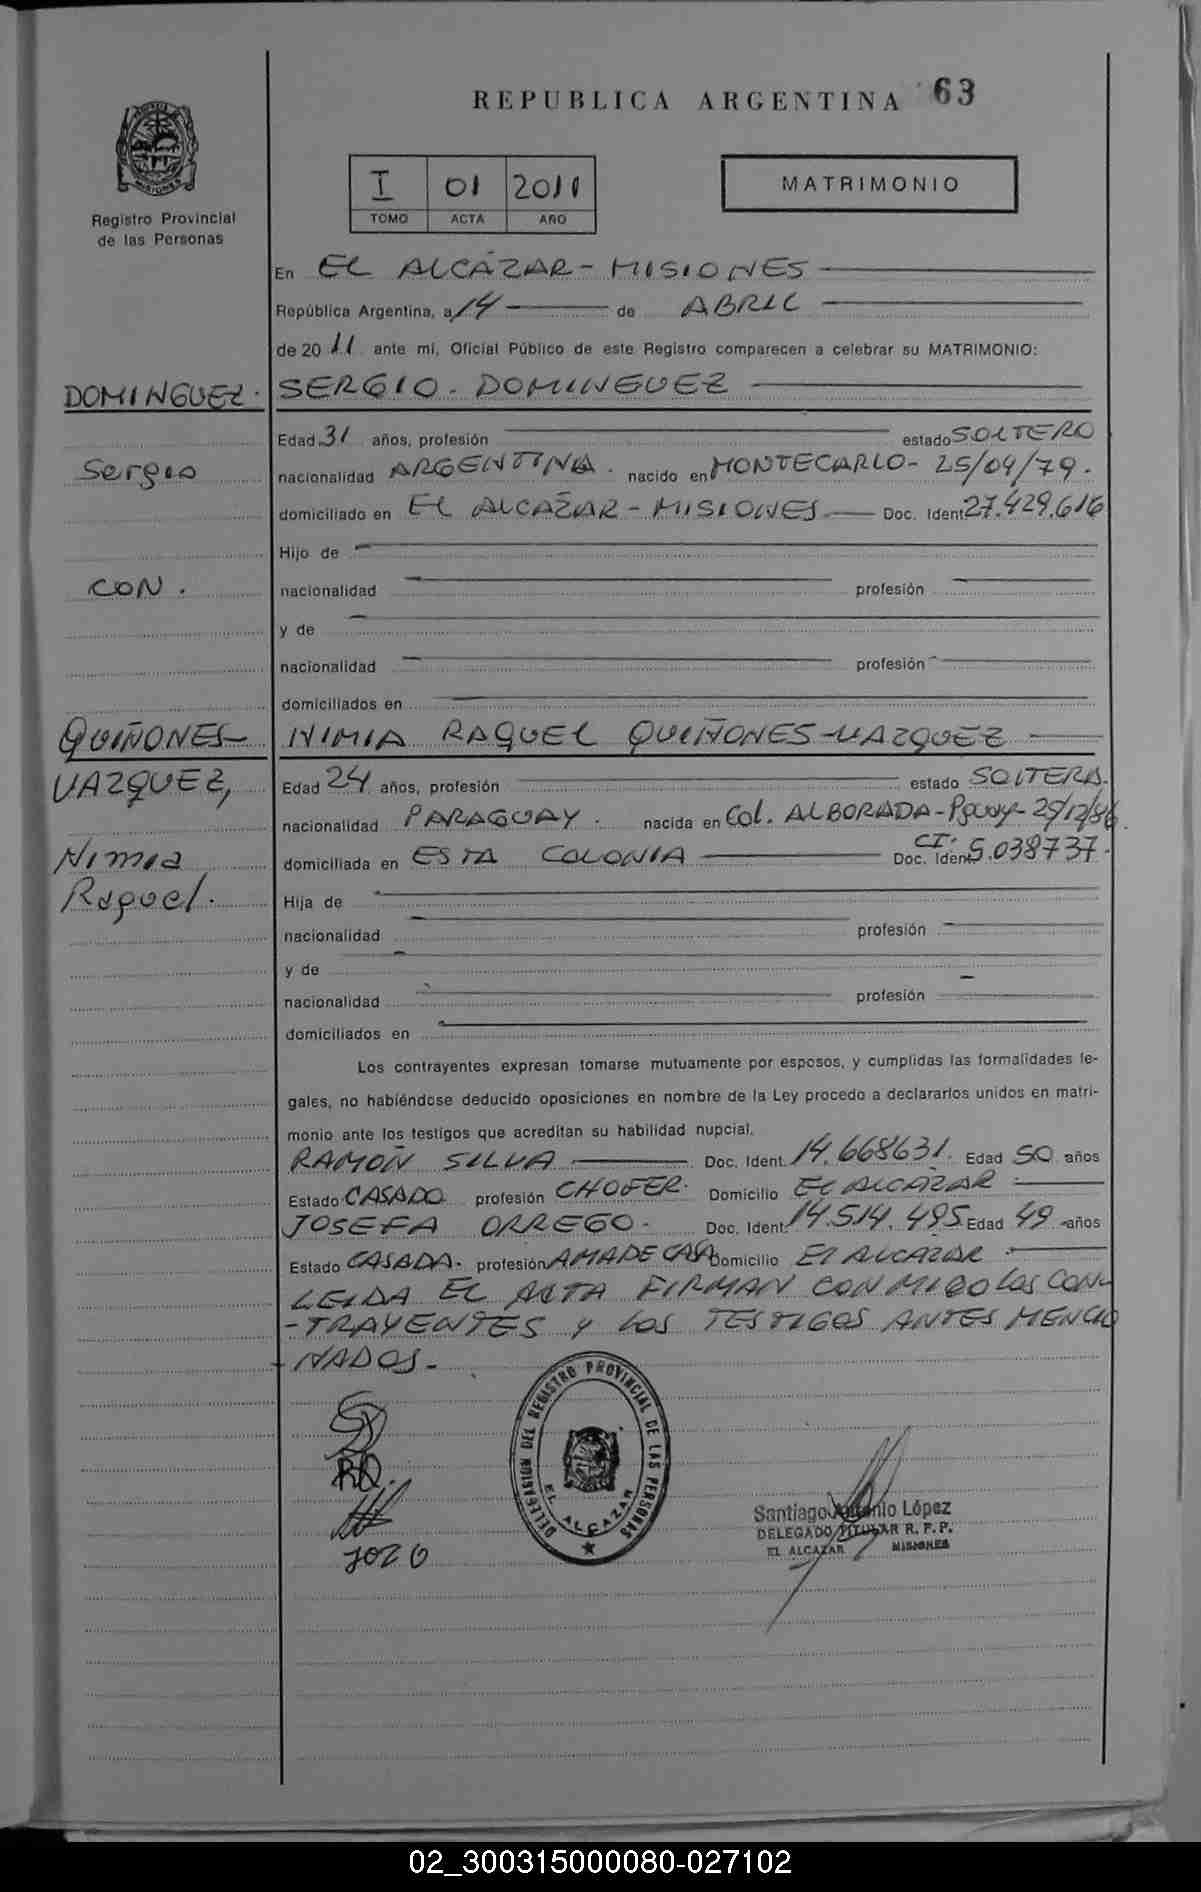 REPUBLICA ARGENTINA 63
Registro Provincial
de las Personas
I 01 2011
TOMO ACTA AÑO
MATRIMONIO
En EL ALCÁZAR - MISIONES
República Argentina, a 14 de ABRIL
de 2011 ante mí, Oficial Público de este Registro comparecen a celebrar su MATRIMONIO:
DOMINGUEZ. SERGIO. DOMINGUEZ
Edad 31 años, profesión estado SOLTERO
Sergio nacionalidad ARGENTINA. nacido en MONTECARLO- 25/04/79.
domiciliado en EL ALCAZAR - MISIONES Doc. Ident 27.429.616
Hijo de
CON. nacionalidad profesión
y de
nacionalidad profesión
domiciliados en
QUIÑONES- NIMIA RAQUEL QUIÑONES-VAZQUEZ
VAZQUEZ, Edad 24 años, profesión estado SOLTERA.
nacionalidad PARAGUAY. nacida en Col. ALBORADA-Pguay- 29/12/86
Nimia domiciliada en ESTA COLONIA Doc. Ident CI. 5.038737.
Raquel. Hija de
nacionalidad profesión
y de
nacionalidad profesión
domiciliados en
Los contrayentes expresan tomarse mutuamente por esposos, y cumplidas las formalidades le-
gales, no habiéndose deducido oposiciones en nombre de la Ley procedo a declararlos unidos en matri-
monio ante los testigos que acreditan su habilidad nupcial.
RAMON SILVA Doc. Ident. 14.668631. Edad 50 años
Estado CASADO profesión CHOFER. Domicilio EL ALCAZAR
JOSEFA ORREGO. Doc. Ident. 14.514.495 Edad 49 años
Estado CASADA. profesión AMA DE CASA Domicilio El ALCAZAR
LEIDA EL ACTA FIRMAN CONMIGO LOS CON-
-TRAYENTES Y LOS TESTIGOS ANTES MENCIO
-NADOS-
DELEGACION DEL REGISTRO PROVINCIAL DE LAS PERSONAS
EL ALCAZAR
RQ.
JOZO
Santiago Antonio López
DELEGADO TITULAR R. P. P.
EL ALCAZAR MISIONES
02_300315000080-027102